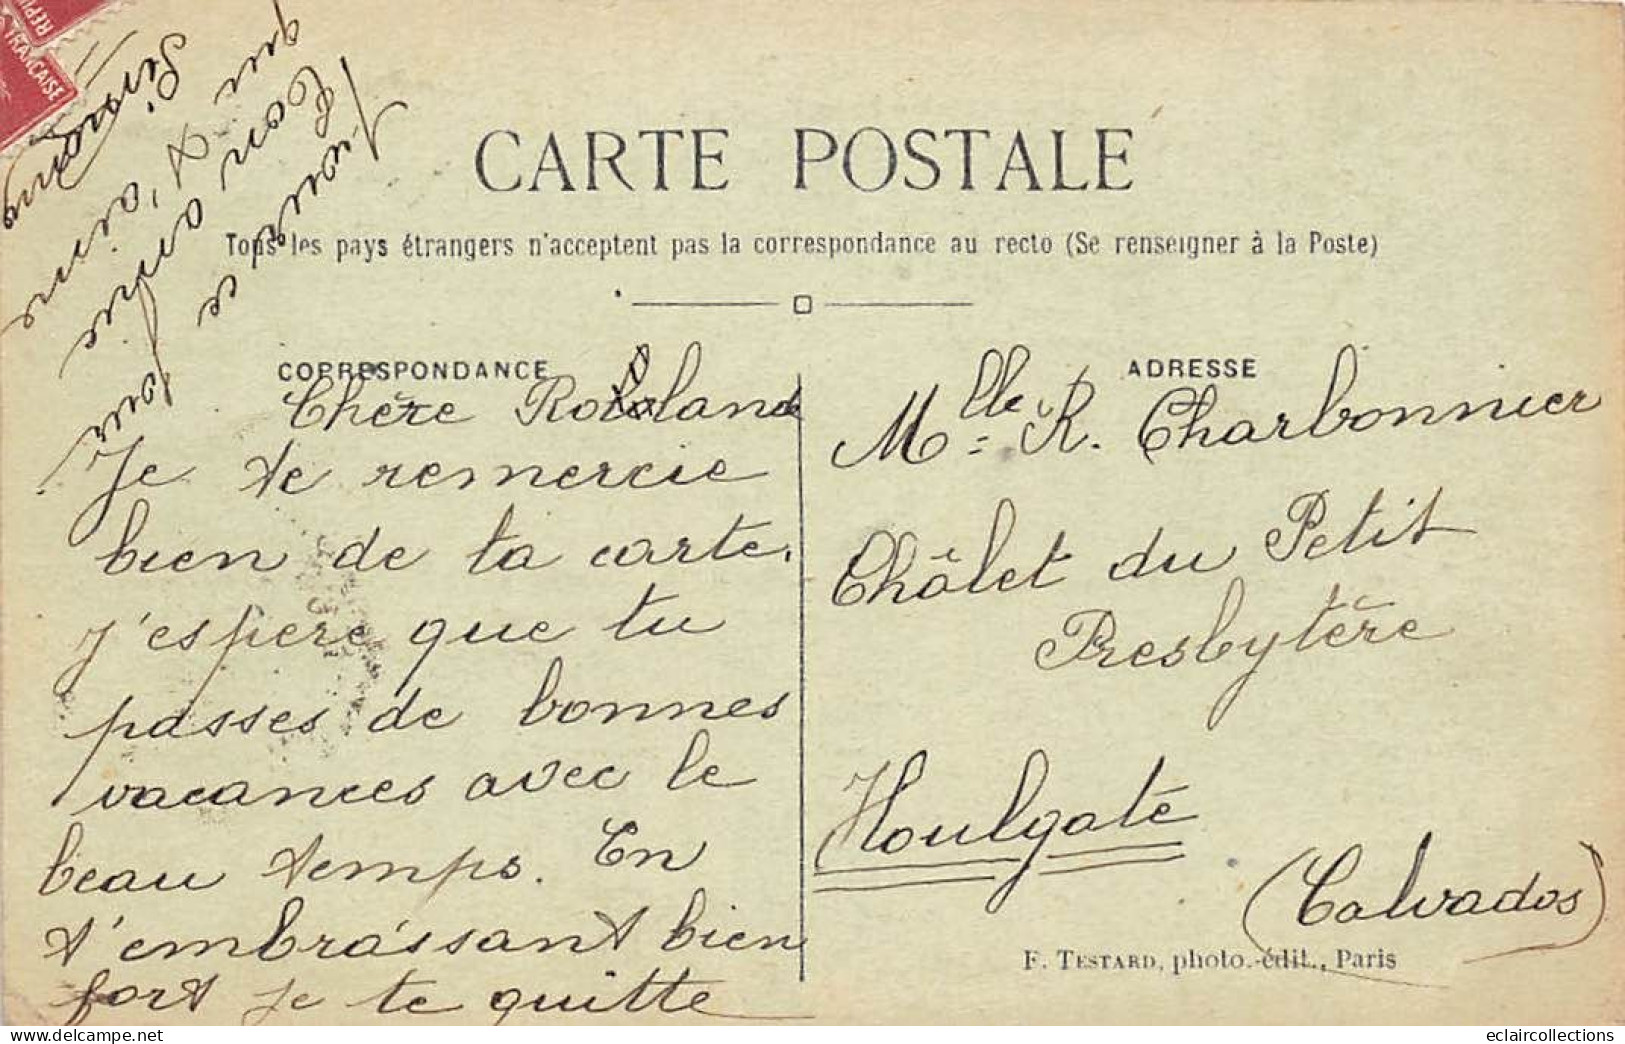 RÉPU
FRANÇAISE
CARTE POSTALE
Tous les pays étrangers n'acceptent pas la correspondance au recto (Se renseigner à la Poste)
CORRESPONDANCE
Chère Rolland
Je te remercie
bien de ta carte.
j'espère que tu
passes de bonnes
vacances avec le
beau temps. En
t'embrassant bien
fort je te quitte
pour
ton amie
qui t'aime
ADRESSE
Mlle R. Charbonnier
Châlet du Petit
Presbytère
Houlgate
(Calvados)
F. TESTARD, photo.-édit., Paris
eclaircollections